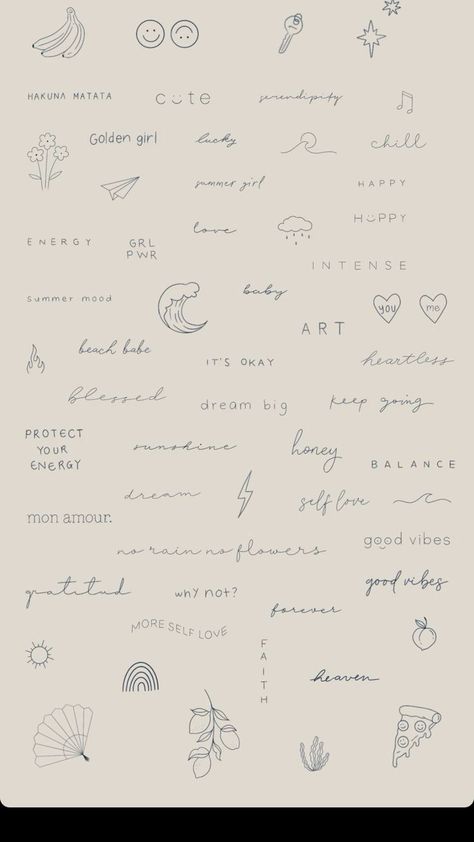 HAKUNA MATATA
cute
serendipity
Golden girl
lucky
chill
summer girl
HAPPY
love
HAPPY
ENERGY
GRL
PWR
INTENSE
summer mood
baby
you
me
ART
beach babe
IT'S OKAY
heartless
blessed
dream big
keep going
PROTECT
YOUR
ENERGY
sunshine
honey
BALANCE
dream
self love
mon amour.
no rain no flowers
good vibes
gratitud
why not?
good vibes
forever
MORE SELF LOVE
FAITH
heaven